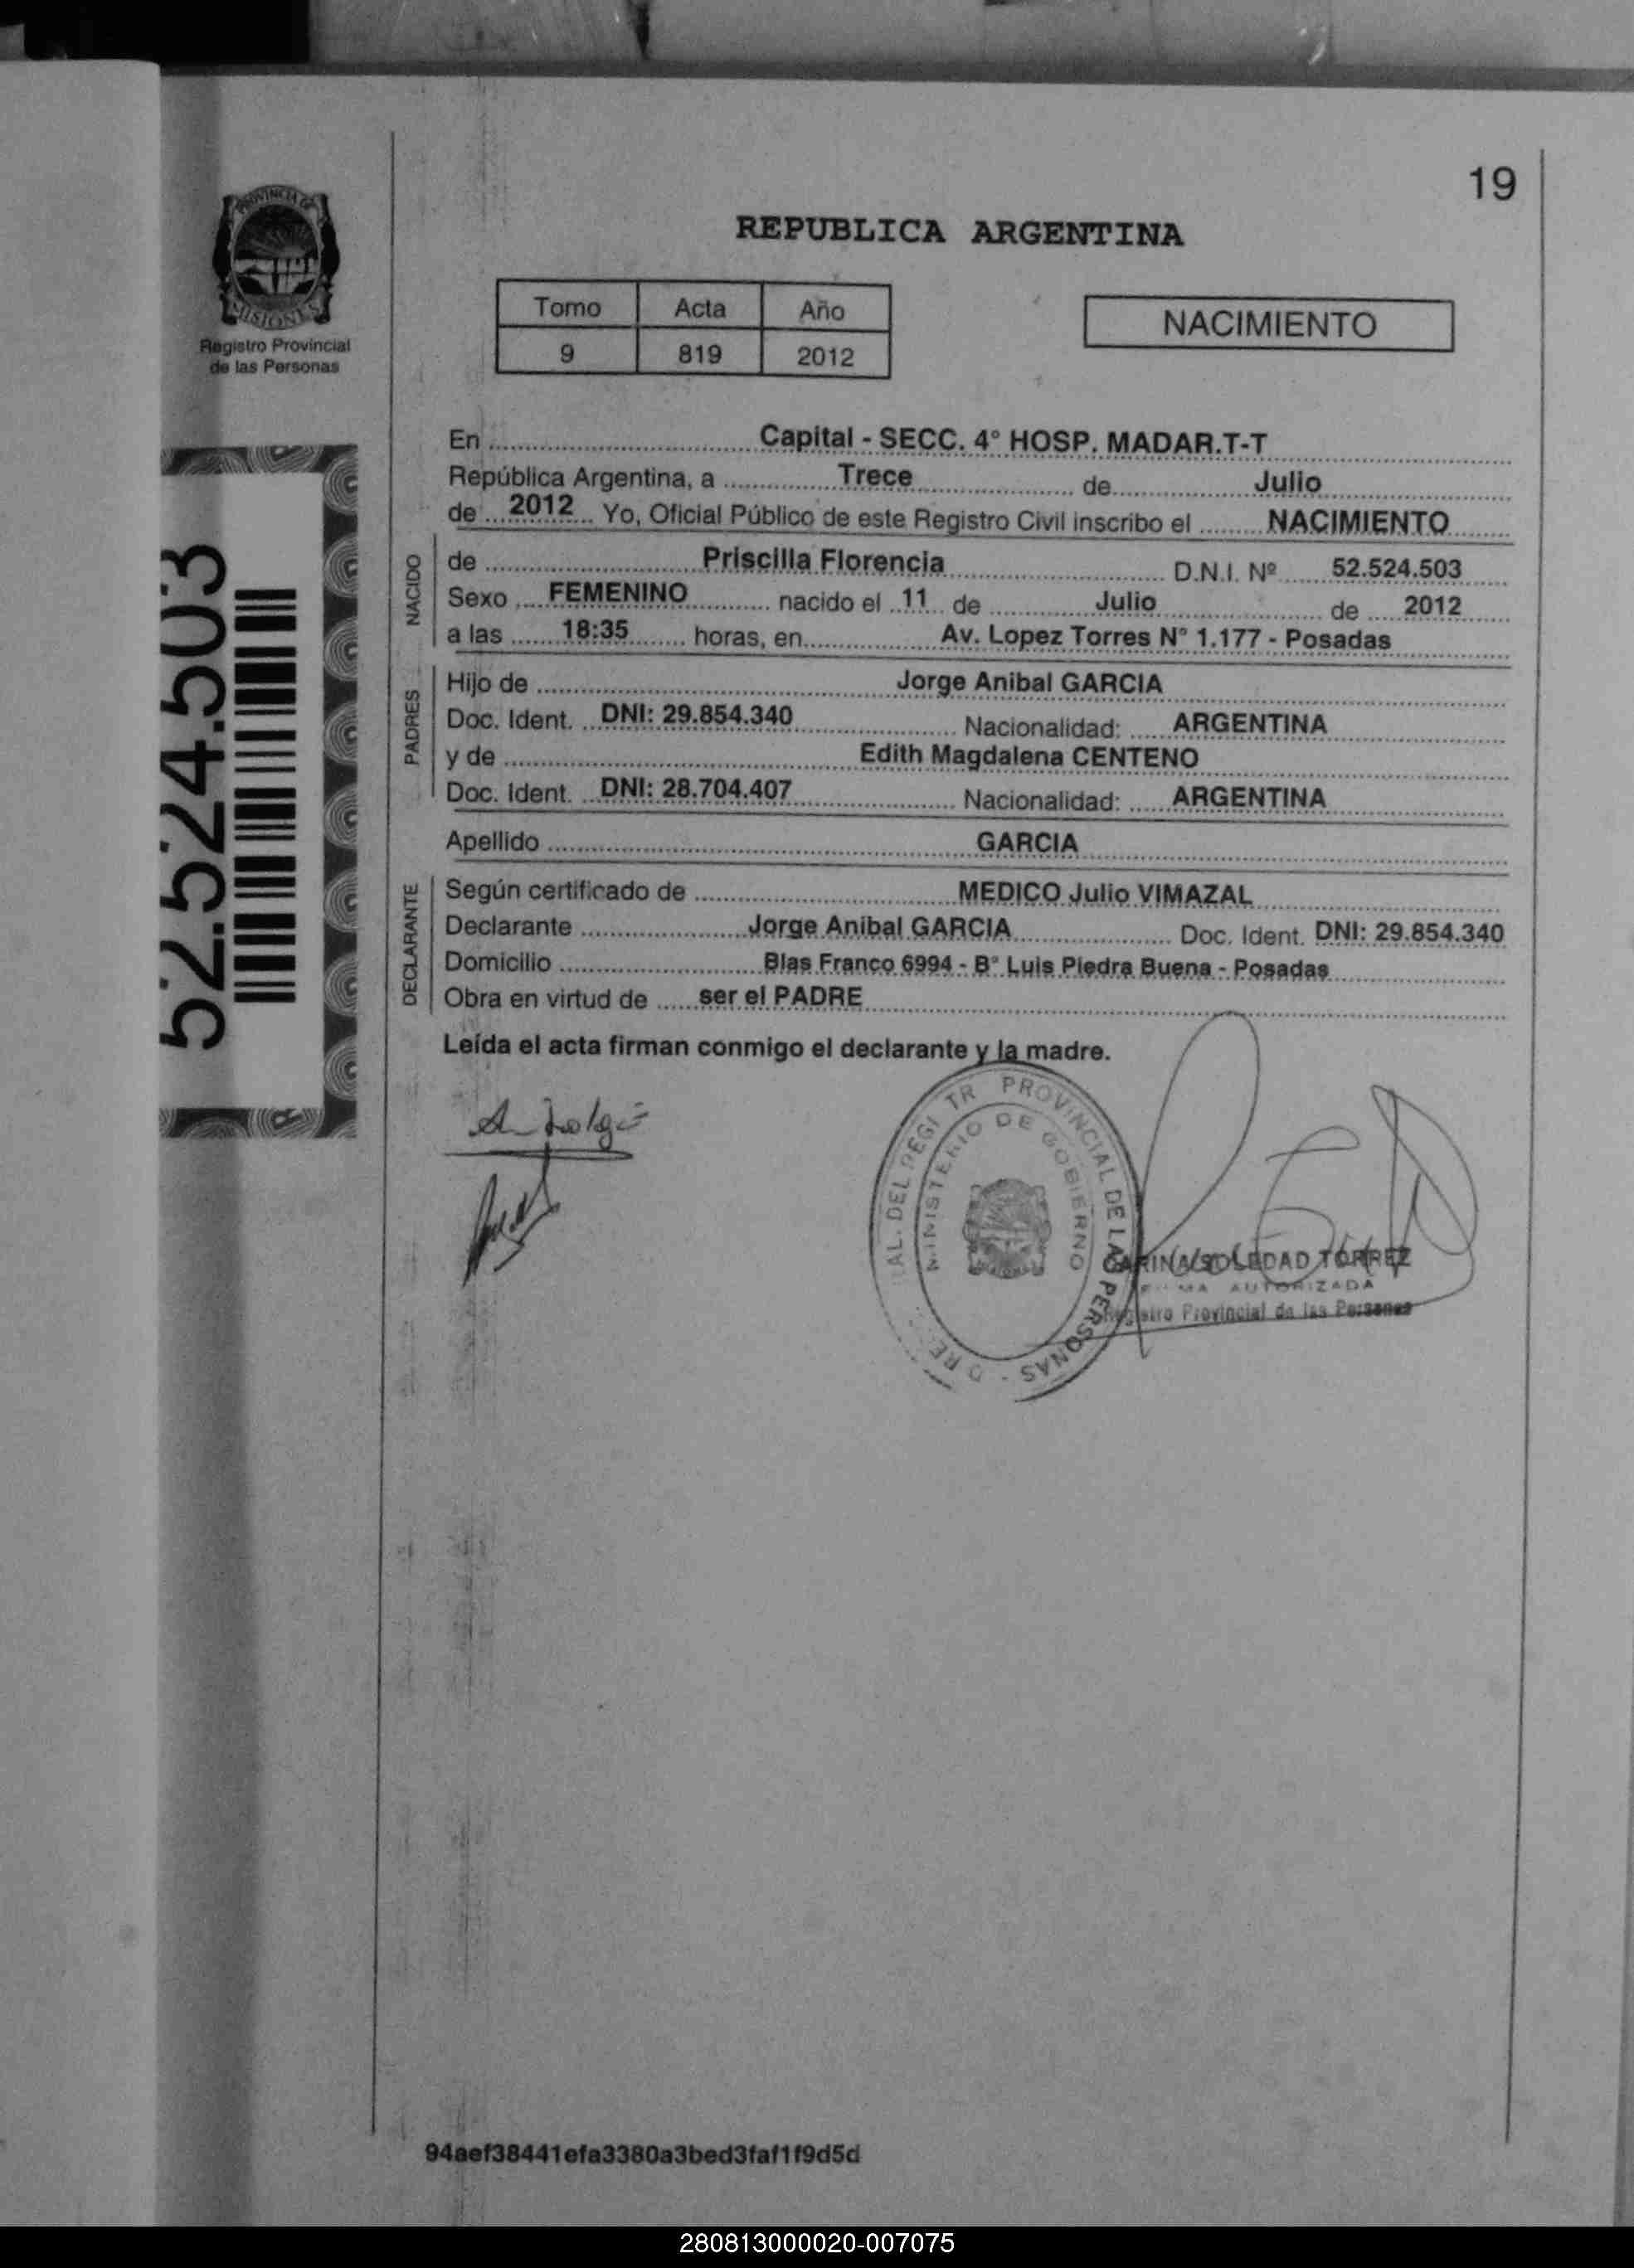 19
PROVINCIA DE
MISIONES
Registro Provincial
de las Personas
REPUBLICA ARGENTINA
Tomo Acta Año
9 819 2012
NACIMIENTO
52.524.503
En Capital - SECC. 4° HOSP. MADAR.T-T
República Argentina, a Trece de Julio
de 2012 Yo, Oficial Público de este Registro Civil inscribo el NACIMIENTO
NACIDO
de Priscilla Florencia D.N.I. Nº 52.524.503
Sexo FEMENINO nacido el 11 de Julio de 2012
a las 18:35 horas, en Av. Lopez Torres N° 1.177 - Posadas
PADRES
Hijo de Jorge Anibal GARCIA
Doc. Ident. DNI: 29.854.340 Nacionalidad: ARGENTINA
y de Edith Magdalena CENTENO
Doc. Ident. DNI: 28.704.407 Nacionalidad: ARGENTINA
Apellido GARCIA
DECLARANTE
Según certificado de MEDICO Julio VIMAZAL
Declarante Jorge Anibal GARCIA Doc. Ident. DNI: 29.854.340
Domicilio Blas Franco 6994 - B° Luis Piedra Buena - Posadas
Obra en virtud de ser el PADRE
Leída el acta firman conmigo el declarante y la madre.
DEL REGI TR PROVINCIAL DE LAS PERSONAS
MINISTERIO DE GOBIERNO
CARINA SOLEDAD TORREZ
FIRMA AUTORIZADA
Registro Provincial de las Personas
94aef38441efa3380a3bed3faf1f9d5d
280813000020-007075